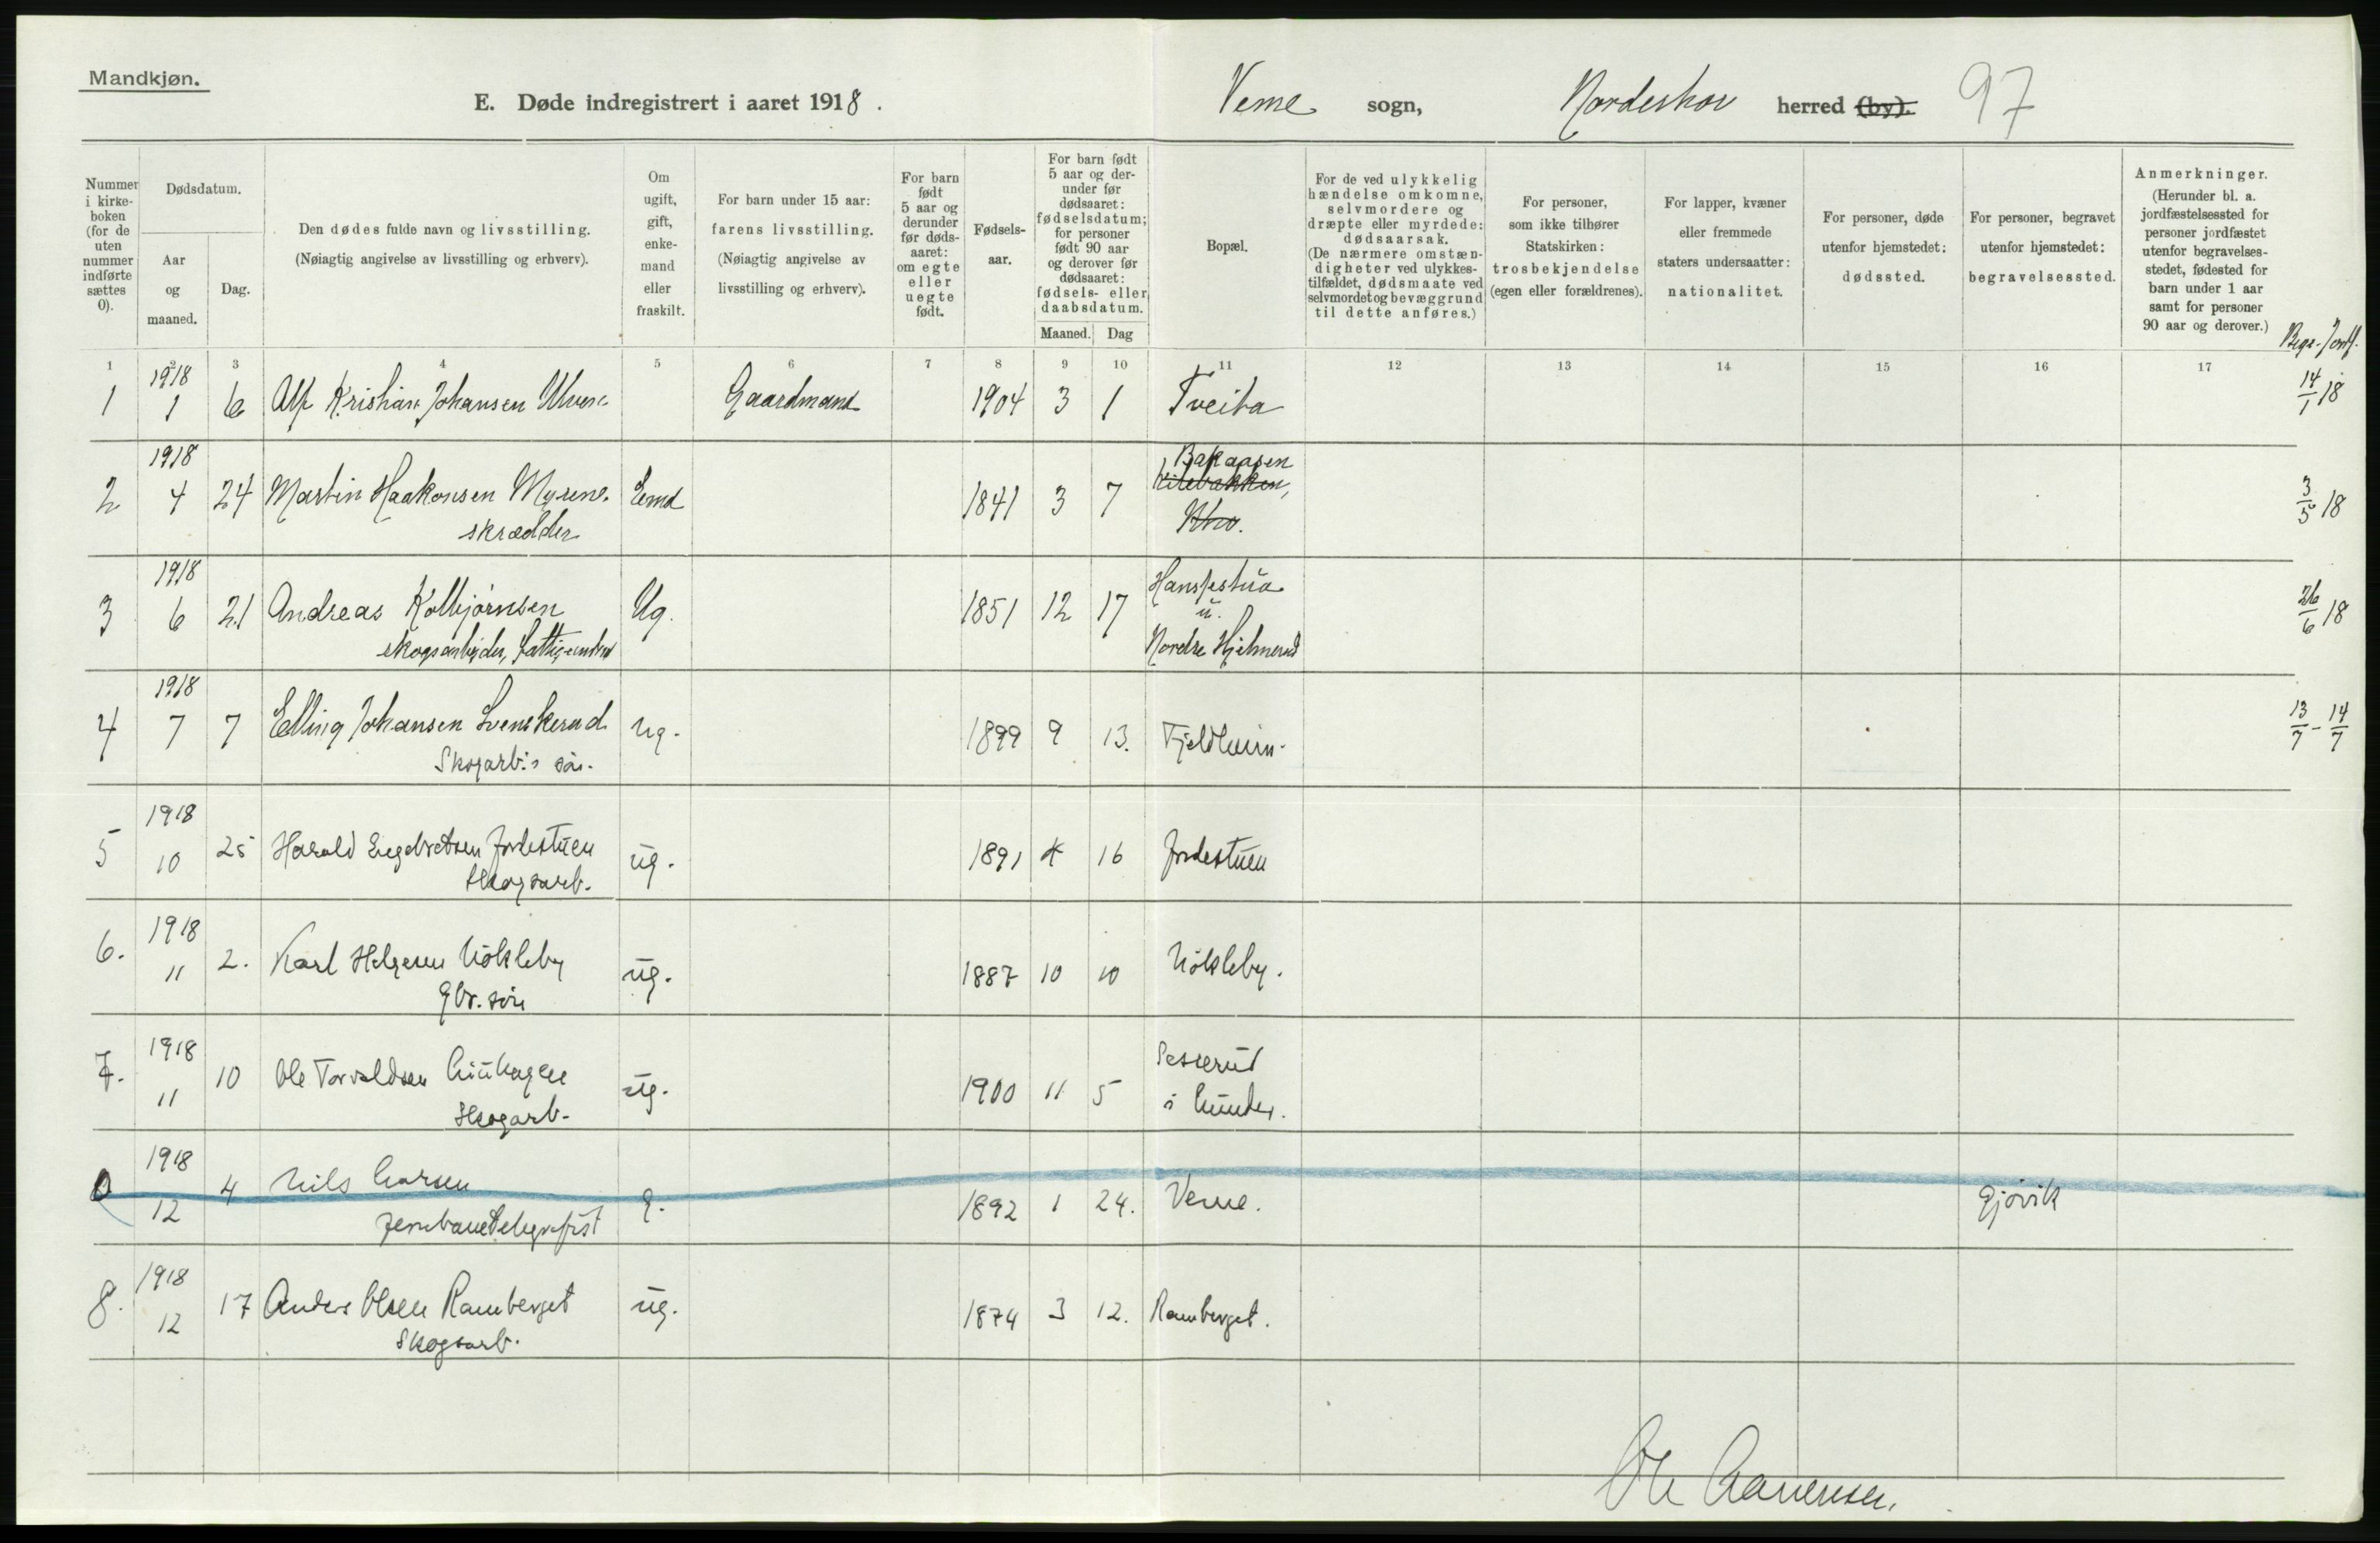 Mandkjøn.
E. Døde indregistrert i aaret 1918. Veme sogn, Norderhov herred (by). 97
Nummer i kirkeboken (for de uten nummer indførte sættes 0).
Dødsdatum.
Aar og maaned.
Dag.
Den dødes fulde navn og livsstilling.
(Nøiagtig angivelse av livsstilling og erhverv).
Om ugift, gift, enkemand eller fraskilt.
For barn under 15 aar: farens livsstilling.
(Nøiagtig angivelse av livsstilling og erhverv).
For barn født 5 aar og derunder før dødsaaret: om egte eller uegte født.
Fødselsaar.
For barn født 5 aar og derunder før dødsaaret: fødselsdatum; for personer født 90 aar og derover før dødsaaret: fødsels- eller daabsdatum.
Maaned. Dag
Bopæl.
For de ved ulykkelig hændelse omkomne, selvmordere og dræpte eller myrdede: dødsaarsak.
(De nærmere omstændigheter ved ulykkestilfældet, dødsmaate ved selvmordet og bevæggrund til dette anføres.)
For personer, som ikke tilhører Statskirken: trosbekjendelse (egen eller forældrenes).
For lapper, kvæner eller fremmede staters undersaatter: nationalitet.
For personer, døde utenfor hjemstedet: dødssted.
For personer, begravet utenfor hjemstedet: begravelsessted.
Anmerkninger.
(Herunder bl. a. jordfæstelsessted for personer jordfæstet utenfor begravelsesstedet, fødested for barn under 1 aar samt for personer 90 aar og derover.)
Begr. Jordf.
1 2 3 4 5 6 7 8 9 10 11 12 13 14 15 16 17
1 1918 1 6 Alf Kristian Johansen Gaardmand 1904 3 1 Tveita 14/1 18
2 1918 4 24 Martin Haakonsen Myrene Emd 1841 3 7 Bakaasen
skrædder
3/5 18
3 1918 6 21 Andreas Kolbjørnsen Ug. 1851 12 17 Hansestua
skogsarbeider, fattigunderst u.
Nordre Hjelmerud
26/6 18
4 1918 7 7 Elling Johansen Svenskerud ug. 1899 9 13. Fjeldheim.
Skogarb.s søn.
13/7 - 14/7
5 1918 10 25 Harald Engebretsen Jordestuen ug. 1891 4 16 Jordestuen
Skogsarb.
6. 1918 11 2. Karl Helgesen Nökleby ug. 1887 10 10 Nökleby.
Gbr. søn
7. 1918 11 10 Ole Torvaldsen ug. 1900 11 5
Skogarb.
i Lunder.
0 1918 12 4 Nils Larsen g. 1892 1 24. Veme. Gjøvik
Jernbanetelegrafist
8. 1918 12 17 Anders Olsen Ramberget ug. 1874 3 12. Ramberget.
Skogsarb.
Ole Aanensen.